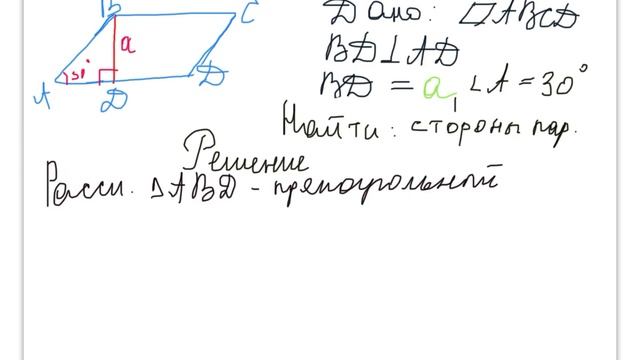 B
C
Дано: ▱ABCD
a
BD⊥AD
A
D
D
BD = a, ∠A = 30°
Найти: стороны пар.
Решение
Рассм. ΔABD - прямоугольный